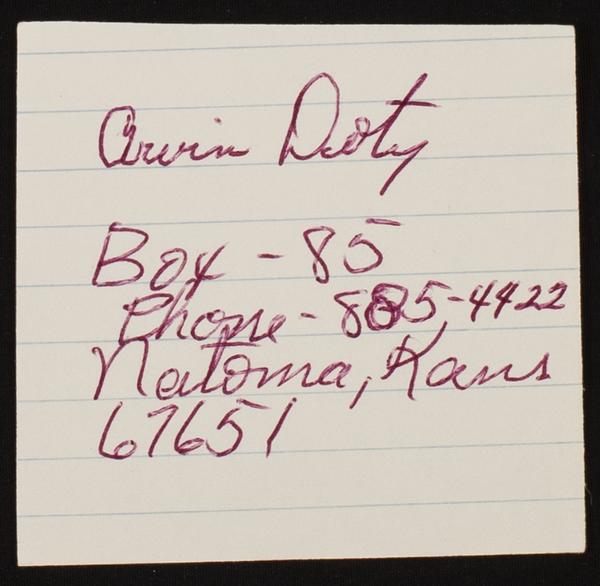 Arvin Doty
Box - 85
Phone - 885-4422
Natoma, Kans
67651